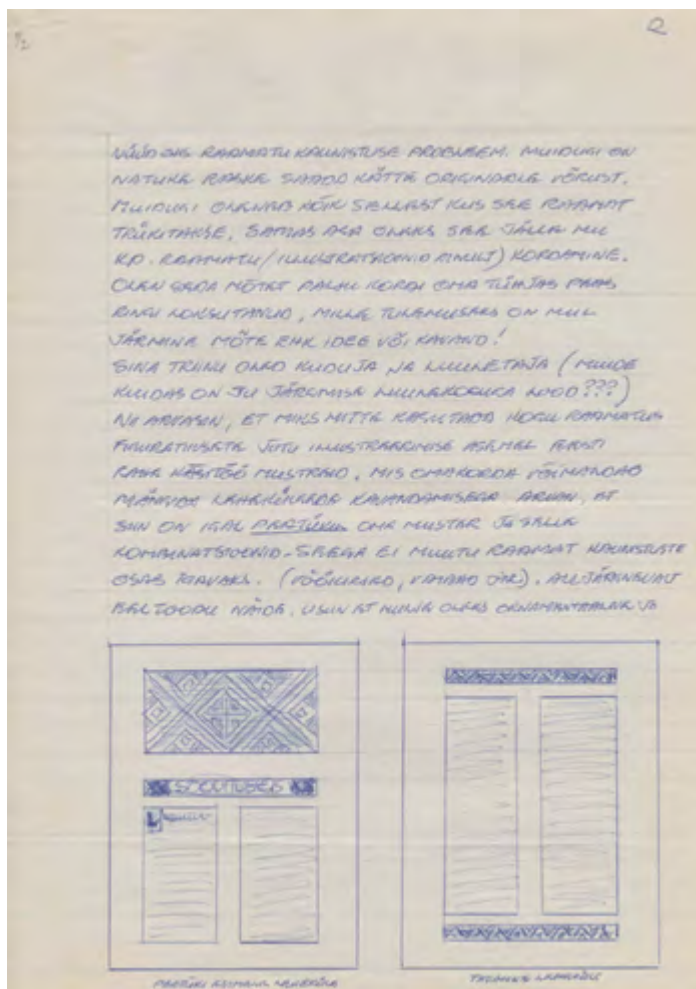 2
NÜÜD SIIS RAAMATU KAUNISTUSE PROBLEEM. MUIDUGI ON
NATUKE RASKE SAADA KÄTTE ORIGINAALE VÕRUST.
MUIDUGI OLENEB KÕIK SELLEST KUS SEE RAAMAT
TRÜKITAKSE, SAMAS AGA OLEKS SEE JÄLLE MU
RAAMATU/ILLUSTRATSIOONID KORDAMINE.
OLEN SEDA MÕTET PALJU KORDI OMA TÜHJAS PEAS
RINGI TULEMUSEKS ON MUL
JÄRGMINE MÕTE EHK IDEE VÕI KAVAND!
SINA TRIINU OLED KUDUJA JA LUULETAJA (MUIDE
KUIDAS ON JU JÄRGMISE LUULEKOGUGA LOOD???)
NII ARVASIN, ET MIKS MITTE KASUTADA KOGU RAAMATUS
FIGURATIIVSETE JUTU ILLUSTREERIMISE ASEMEL EESTI
KÄSITÖÖ MUSTREID, MIS OMAKORDA VÕIMALDAB
LEHEKÜLGEDE KAVANDAMISEGA ARVAN, ET
SIIN ON IGAL PEATÜKIL OMA MUSTER JA SELLE
KOMBINATSIOONID. SEEGA EI MUUTU RAAMAT KAUNISTUSTE
OSAS IGAVAKS. (VÖÖKIRJAD, VAIBAD JNE). ALLJÄRGNEVALT
TOODU NÄIDE. USUN ET MULJE OLEKS ORNAMENTAALNE JA
PEATÜKI ESIMENE LEHEKÜLG
LEHEKÜLG